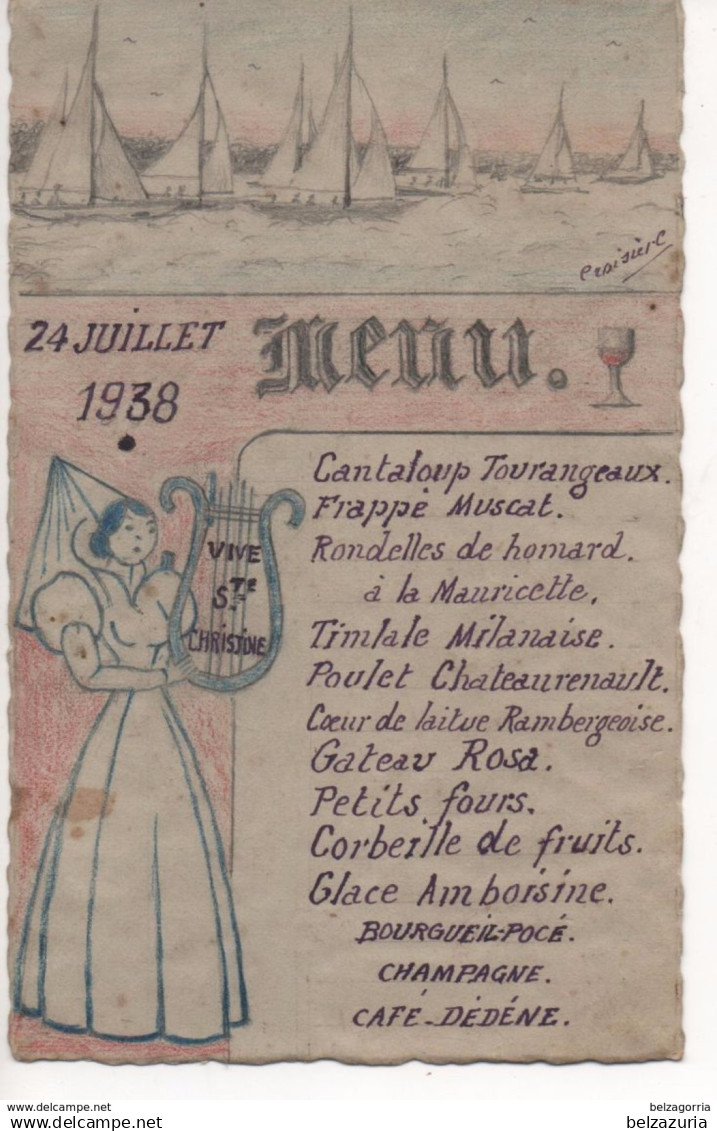 Croisière
24 JUILLET
1938
Menu.
VIVE
STE
CHRISTINE
Cantaloup Tourangeaux.
Frappé Muscat.
Rondelles de homard.
à la Mauricette.
Timlale Milanaise.
Poulet Chateaurenault.
Cœur de laitue Rambergeoise.
Gateau Rosa.
Petits fours.
Corbeille de fruits.
Glace Amboisine.
BOURGUEIL-POCÉ.
CHAMPAGNE.
CAFÉ-DÉDÉNE.
www.delcampe.net
belzagorria
belzazuria